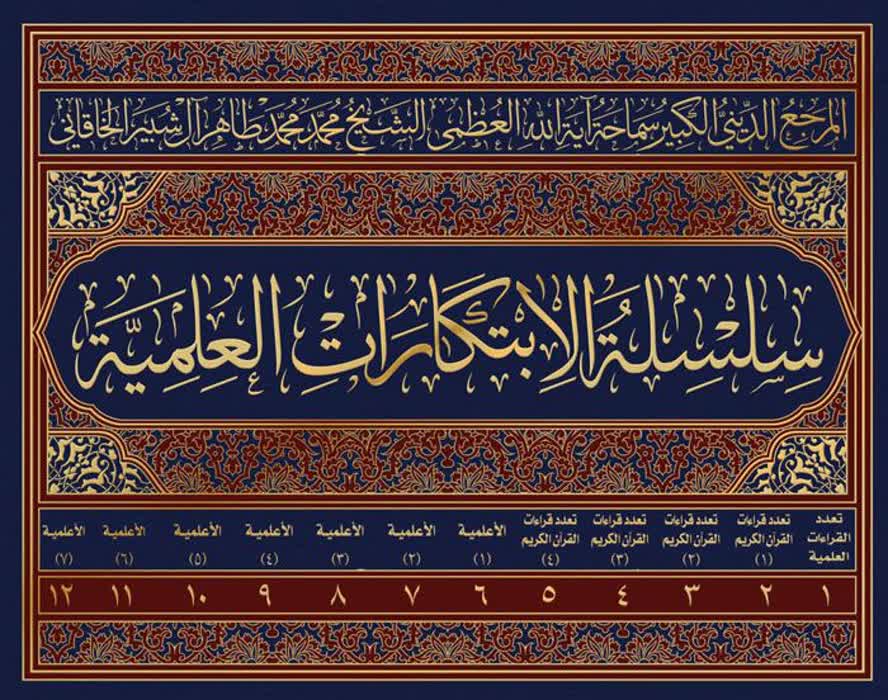 المرجع الديني الكبير سماحة آية الله العظمى الشيخ محمد محمد طاهر آل شبير الخاقاني
سلسلة الابتكارات العلمية
تعدد القراءات العلمية
تعدد قراءات القرآن الكريم (١)
تعدد قراءات القرآن الكريم (٢)
تعدد قراءات القرآن الكريم (٣)
تعدد قراءات القرآن الكريم (٤)
الأعلمية (١)
الأعلمية (٢)
الأعلمية (٣)
الأعلمية (٤)
الأعلمية (٥)
الأعلمية (٦)
الأعلمية (٧)
١ ٢ ٣ ٤ ٥ ٦ ٧ ٨ ٩ ١٠ ١١ ١٢